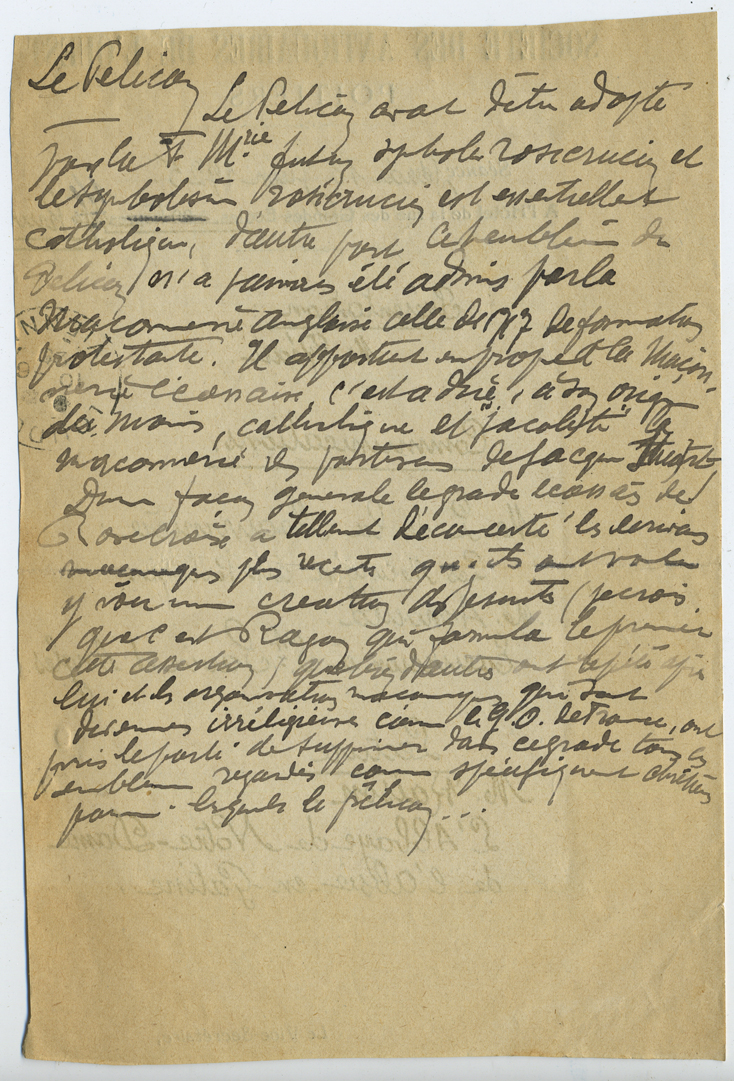 Le Pelican
Le Pelican avant d'être adopté
par la F M.rie fut un symbole rosicrucien et
le symbolisme rosicrucien est essentiellement
catholique, d'autre part cet emblème du
Pelican n'a jamais été admis par la
Maçonnerie anglaise celle de 1717 de formation
protestante. Il appartient en propre à la Maçon-
nerie écossaise, c'est à dire, à son origine
du moins, catholique et "jacobite" la
maçonnerie des partisans de Jacques Stuart,
D'une façon generale le grade écossais de
Rose croix a tellement déconcerté les écrivains
maçonniques plus recents qu'ils ont voulu
y voir une creation des jesuites (je crois
que c'est Ragon qui formula le premier
cette assertion) que bien d'autres ont répété après
lui et les organisations maçonniques qui sont
devenues irréligieuses comme le G.O. de France, ont
pris le parti de supprimer dans ce grade tous les
emblèmes regardés comme spécifiquement chrétiens
parmi lesquels le pélican...